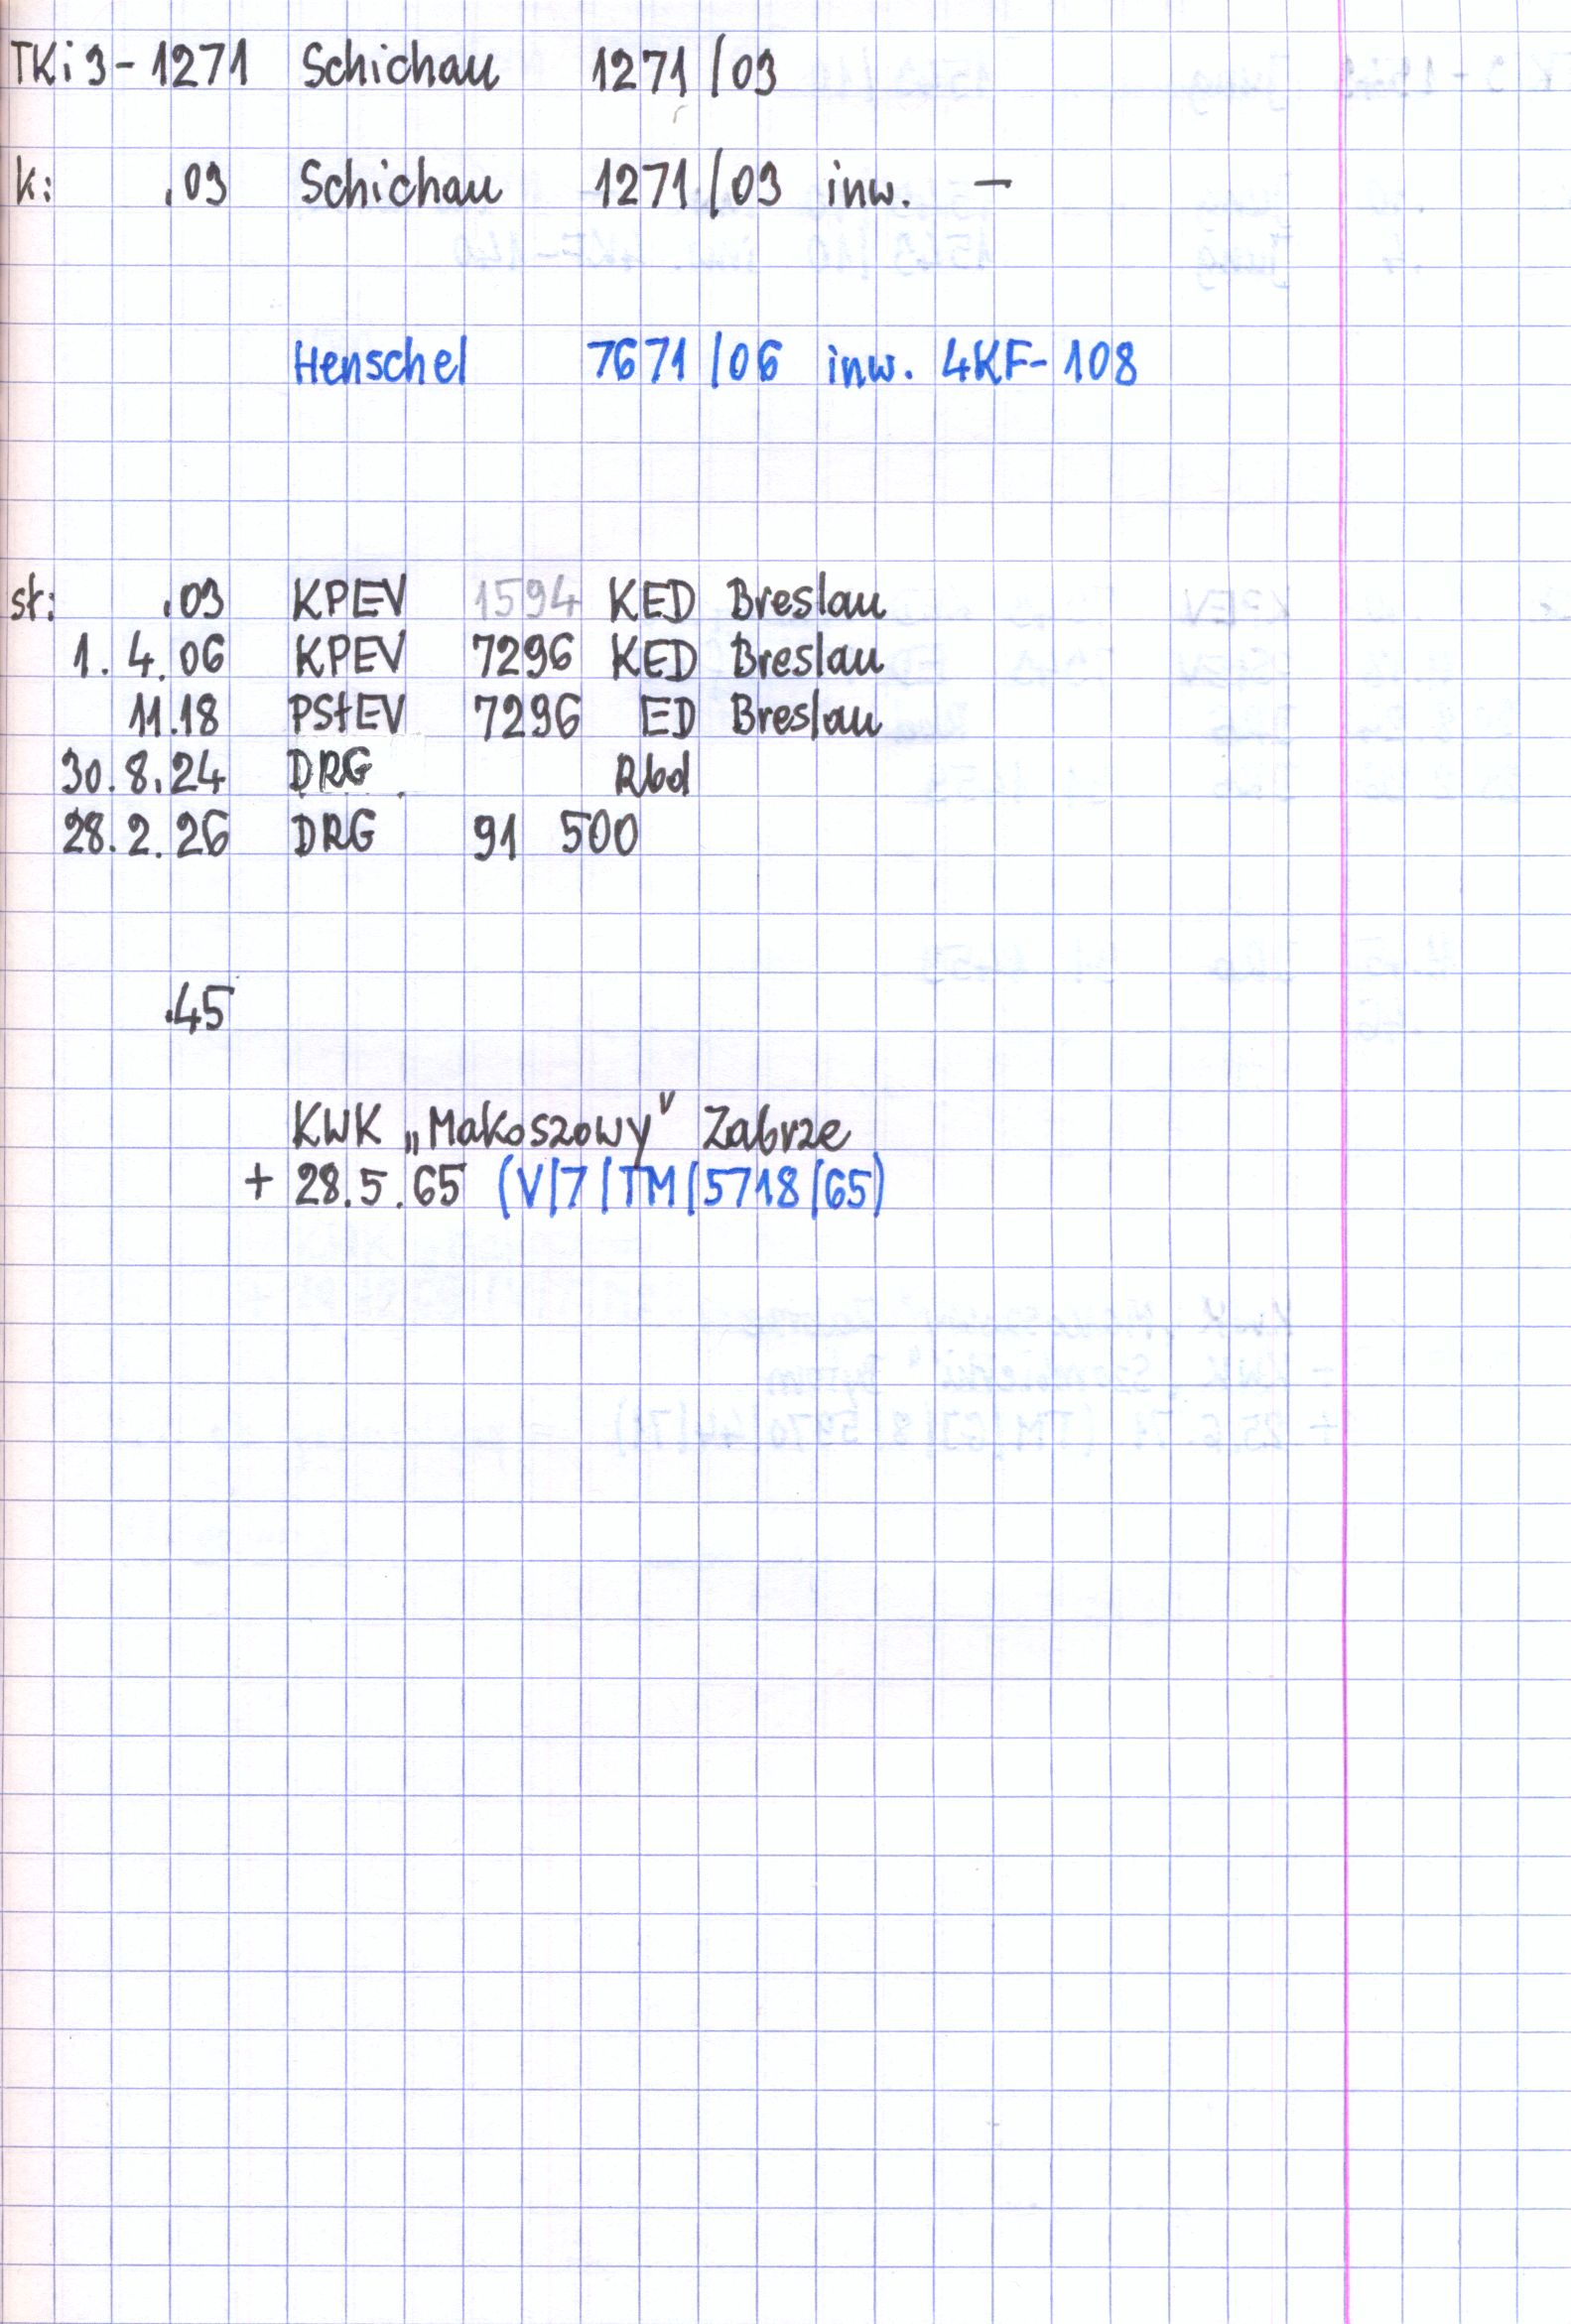 TKi3-1271 Schichau 1271/03
k: .03 Schichau 1271/03 inw. –
Henschel 7671/06 inw. 4KF-108
st: .03 KPEV 1594 KED Breslau
1.4.06 KPEV 7296 KED Breslau
11.18 PStEV 7296 ED Breslau
30.8.24 DRG Rbd
28.2.26 DRG 91 500
.45
KWK „Makoszowy" Zabrze
+ 28.5.65 (V/7/TM/5718/65)